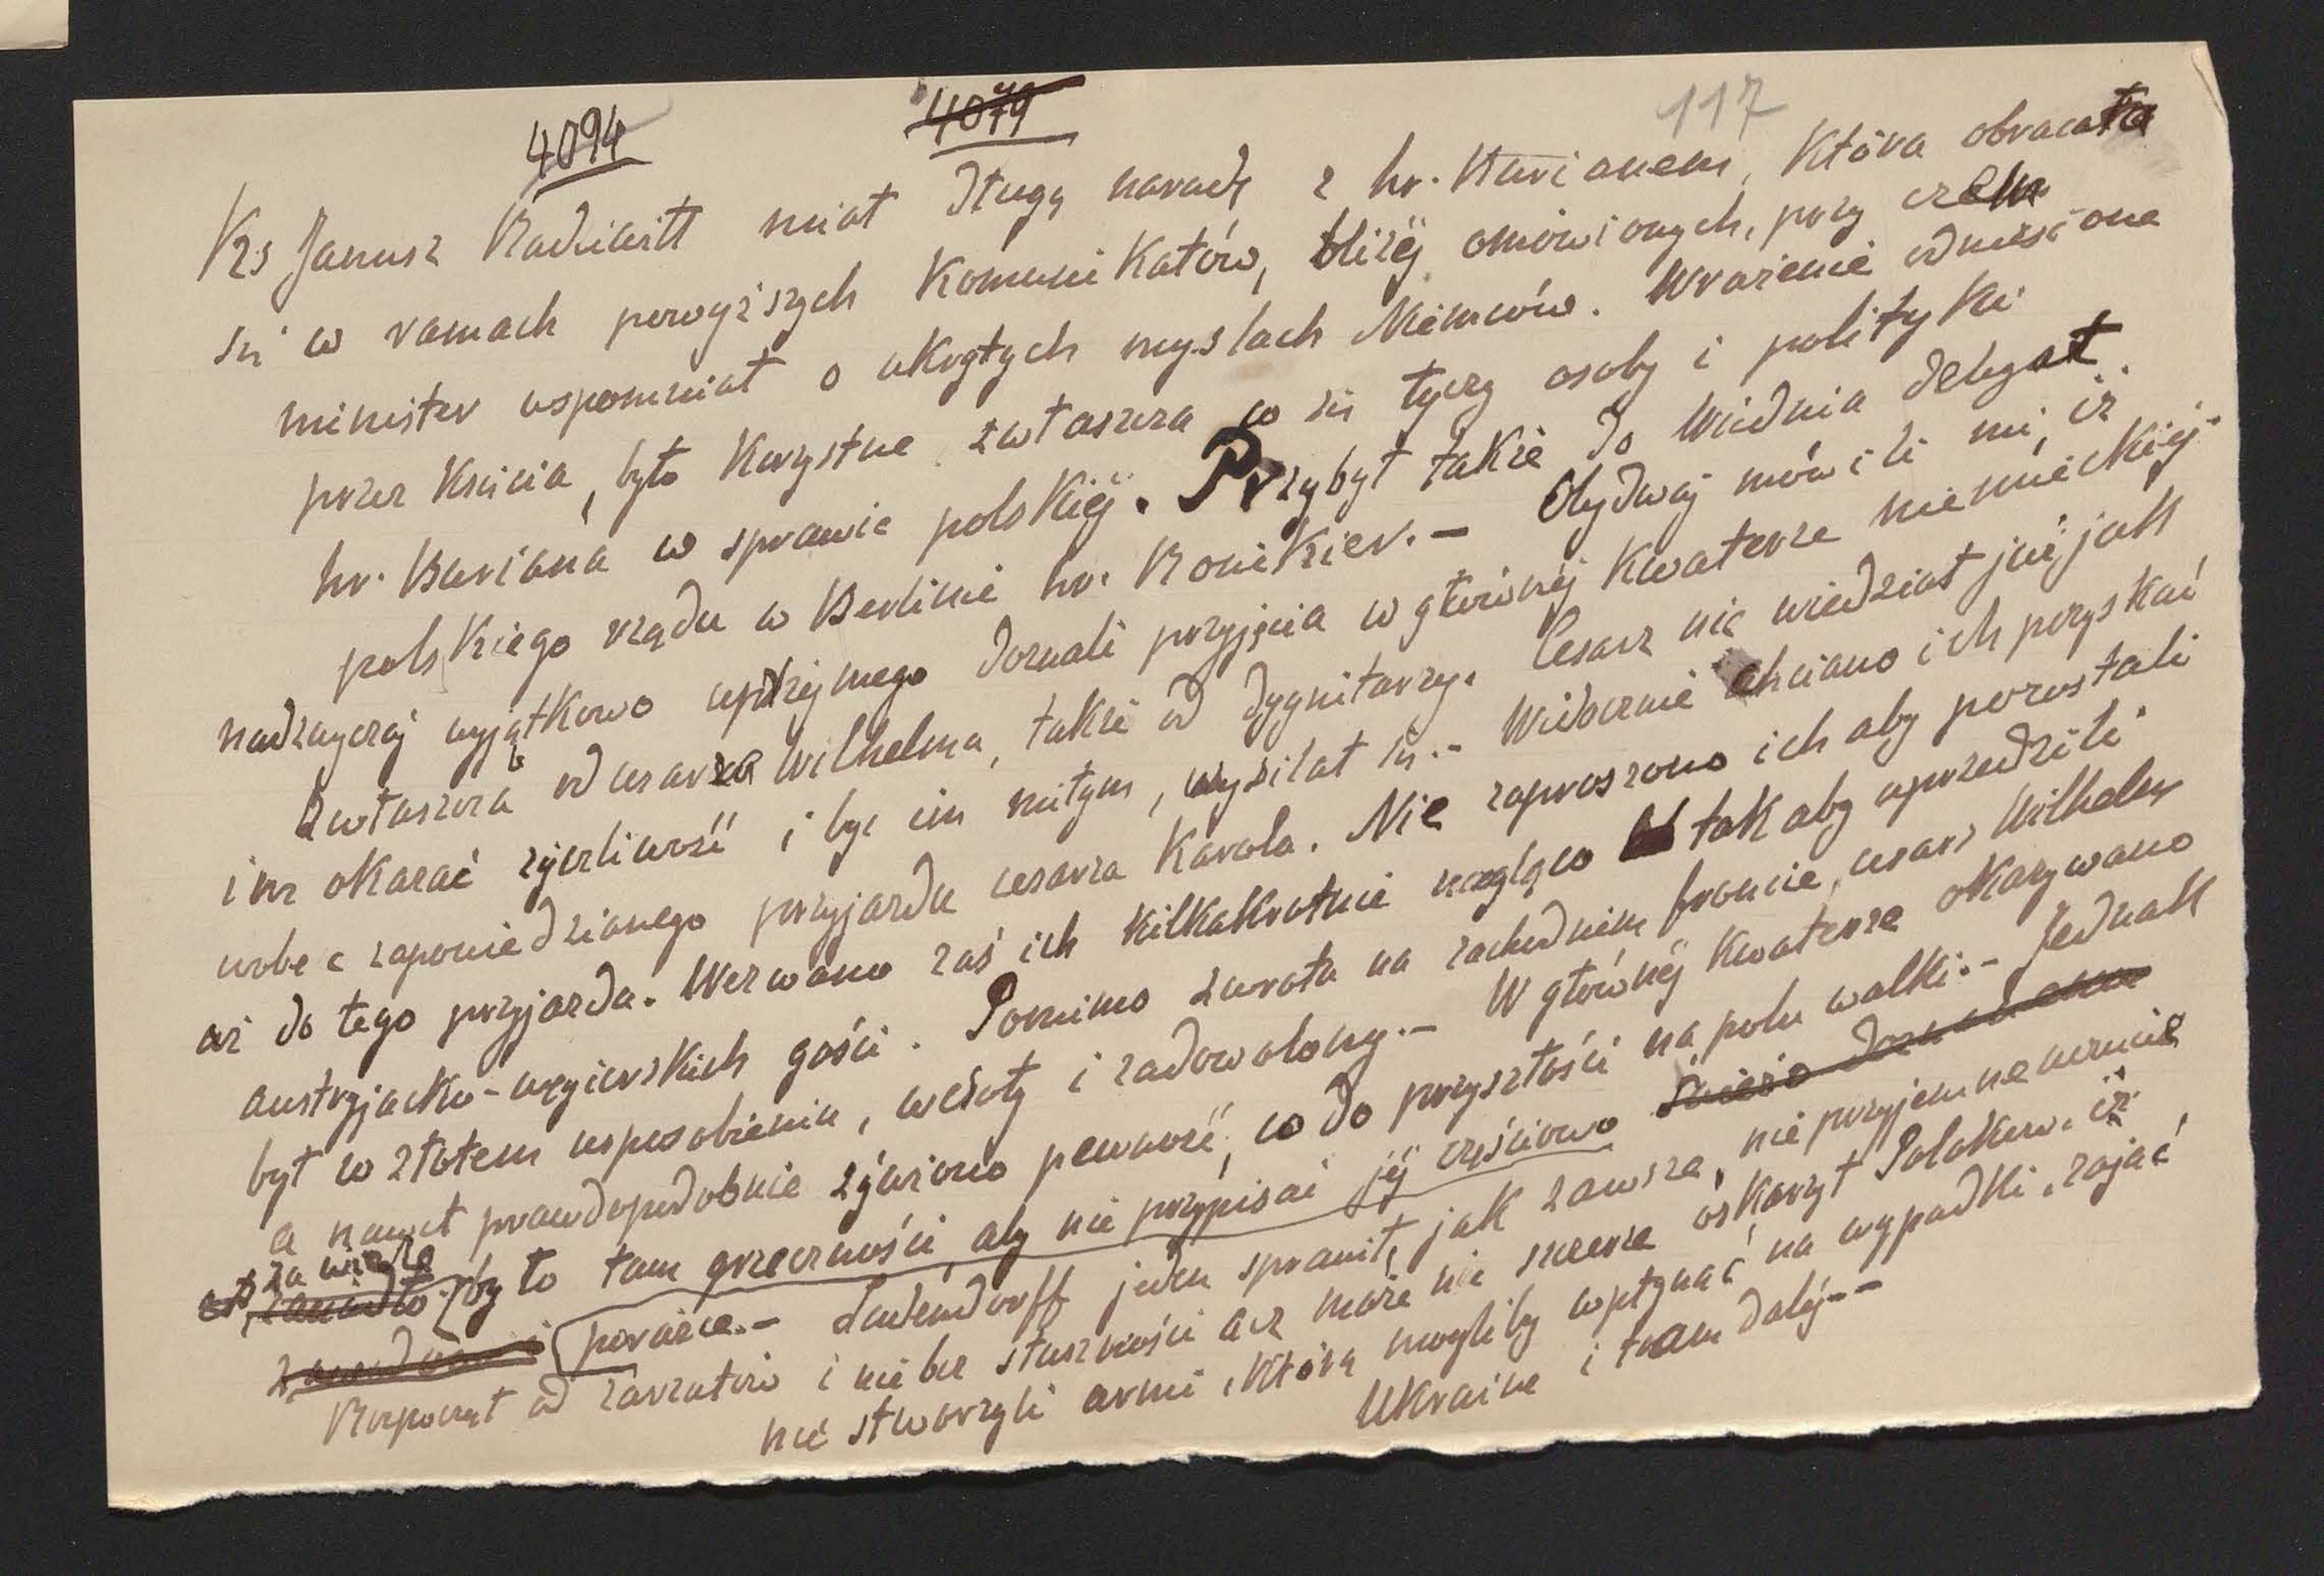 4094 4079 117
Ks Janusz Radziwiłł miał długą naradę z hr. Burianem, która obracała
się w ramach powyższych komunikatów, bliżej omówionych, przy czem
minister wspomniał o ukrytych myślach Niemców. Wrażenie odniesione
przez Księcia, było korzystne zwłaszcza co się tyczy osoby i polityki
hr. Buriana w sprawie polskiej. Przybył także do Wiednia delegat
polskiego rządu w Berlinie hr. Ronikier. – Obydwaj mówili mi, iż
nadzwyczaj wyjątkowo uprzejmego doznali przyjęcia w głównej kwaterze niemieckiej
zwłaszcza od cesarza Wilhelma, także od dygnitarzy. Cesarz nie wiedział już jak
im okazać życzliwość i być im miłym, wysilał się. – Widocznie chciano ich pozyskać
wobec zapowiedzianego przyjazdu cesarza Karola. Nie zaproszono ich aby pozostali
aż do tego przyjazdu. Wezwano zaś ich kilkakrotnie nagląco tak aby uprzedzili
austryjacko-węgierskich gości. Pomimo zwrotu na zachodnim froncie, cesarz Wilhelm
był w złotem usposobieniu, wesoły i zadowolony. – W głównej kwaterze okazywano
a nawet prawdopodobnie żywiono pewność, co do przyszłości na polu walki. – Jednak
za wiele
było tam grzeczności, aby nie przypisać jej częściowo świeżo
porażce. – Ludendorff jeden sprawił, jak zawsze, nieprzyjemne wrażenie
Rozpoczął od zarzutów i nie bez słuszności acz może nie szczerze oskarżył Polaków, iż
nie stworzyli armii, którą mogliby wpłynąć na wypadki, zająć
Ukrainę i tam dalej – –